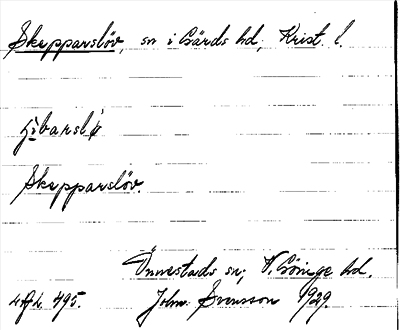 Skepparslöv, sn i Gärds hd, Krist. l.
Skepparslöv.
Önnestads sn, V. Göinge hd.
495. John Svensson 1929.